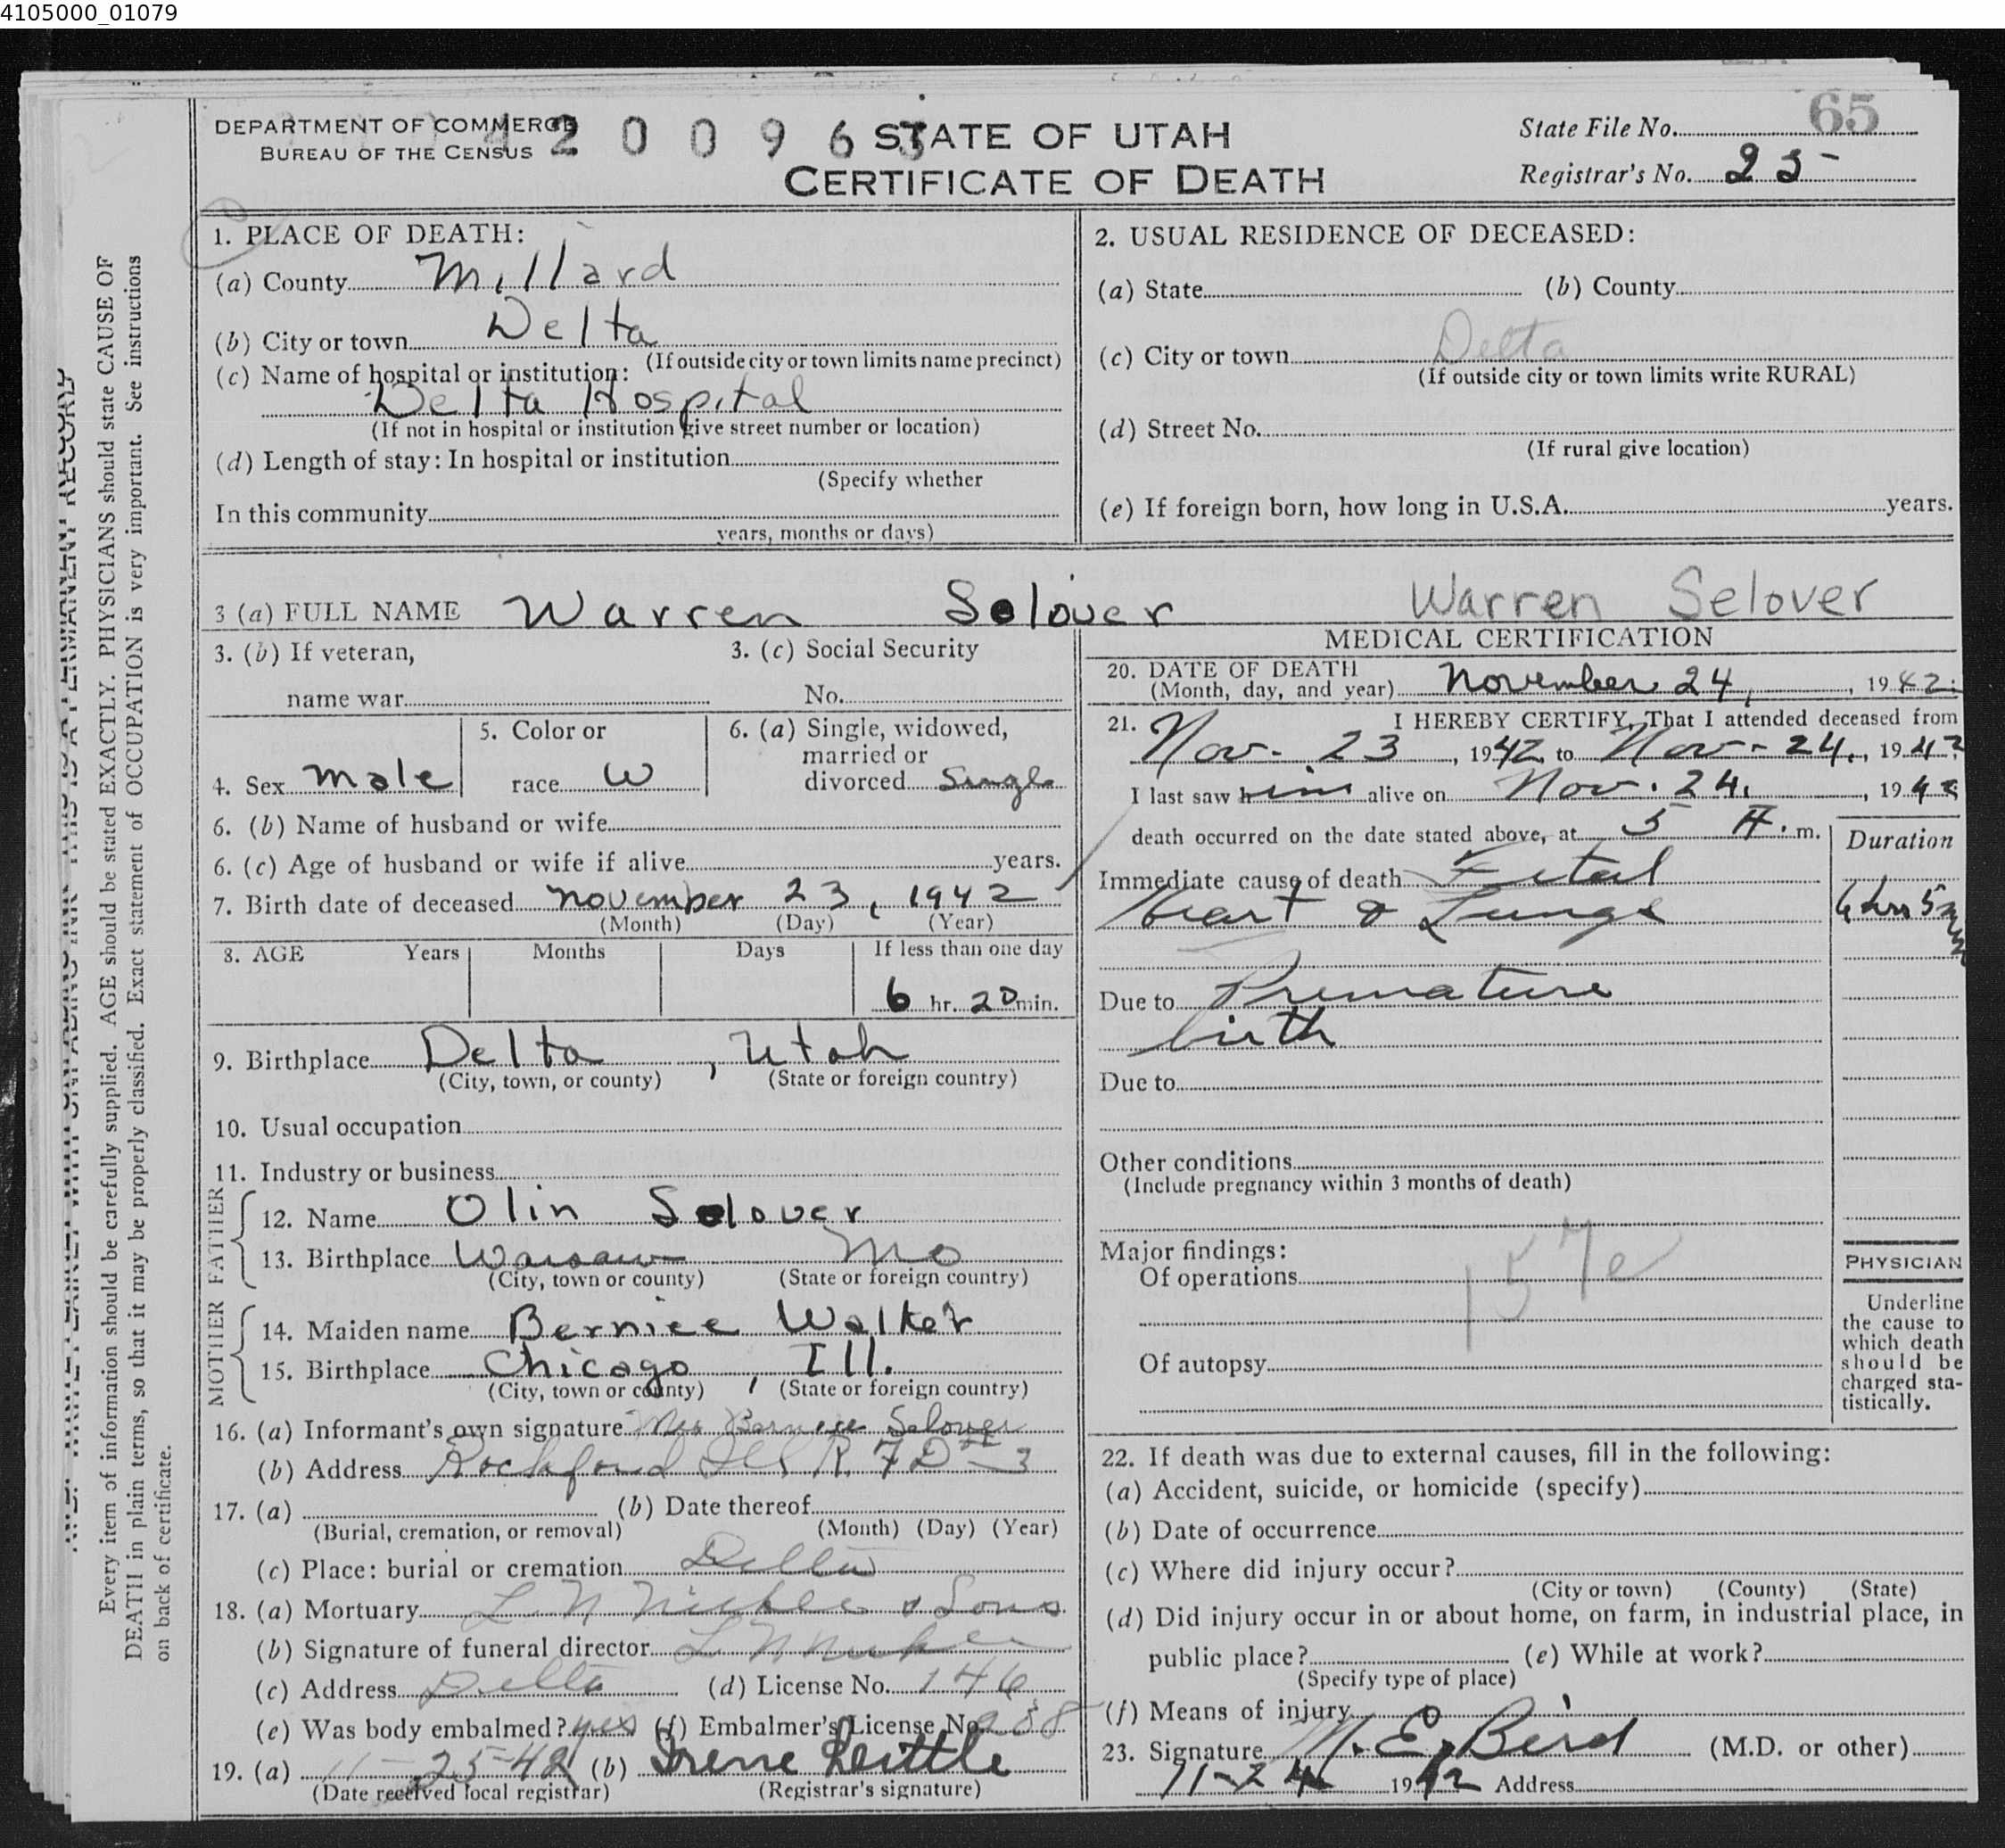 4105000_01079
DEPARTMENT OF COMMERCE
BUREAU OF THE CENSUS
4 2 0 0 9 6 3
STATE OF UTAH
CERTIFICATE OF DEATH
State File No. 65
Registrar's No. 25
1. PLACE OF DEATH:
(a) County Millard
(b) City or town Delta
(If outside city or town limits name precinct)
(c) Name of hospital or institution:
Delta Hospital
(If not in hospital or institution give street number or location)
(d) Length of stay: In hospital or institution
(Specify whether
In this community
years, months or days)
2. USUAL RESIDENCE OF DECEASED:
(a) State (b) County
(c) City or town Delta
(If outside city or town limits write RURAL)
(d) Street No.
(If rural give location)
(e) If foreign born, how long in U.S.A. years.
3 (a) FULL NAME Warren Selover Warren Selover
3. (b) If veteran,
name war
3. (c) Social Security
No.
4. Sex Male
5. Color or
race W
6. (a) Single, widowed,
married or
divorced Single
6. (b) Name of husband or wife
6. (c) Age of husband or wife if alive years.
7. Birth date of deceased November 23, 1942
(Month) (Day) (Year)
8. AGE Years Months Days If less than one day
6 hr. 20 min.
9. Birthplace Delta, Utah
(City, town, or county) (State or foreign country)
10. Usual occupation
11. Industry or business
FATHER
12. Name Olin Selover
13. Birthplace Warsaw Mo
(City, town or county) (State or foreign country)
MOTHER
14. Maiden name Bernice Walker
15. Birthplace Chicago, Ill.
(City, town or county) (State or foreign country)
16. (a) Informant's own signature Mrs Bernice Selover
(b) Address Rockford Ill R. F D - 3
17. (a) (b) Date thereof
(Burial, cremation, or removal) (Month) (Day) (Year)
(c) Place: burial or cremation Delta
18. (a) Mortuary L N & Sons
(b) Signature of funeral director L N
(c) Address Delta (d) License No. 146
(e) Was body embalmed? yes (f) Embalmer's License No.
19. (a) 11-25-42 (b) Irene Little
(Date received local registrar) (Registrar's signature)
MEDICAL CERTIFICATION
20. DATE OF DEATH
(Month, day, and year) November 24, 1942
21. I HEREBY CERTIFY, That I attended deceased from
Nov- 23, 1942 to Nov- 24, 1942
I last saw him alive on Nov. 24, 1942
death occurred on the date stated above, at 5 A. m.
Duration
Immediate cause of death Fetal
Heart & Lungs
Due to Premature
birth
Due to
Other conditions
(Include pregnancy within 3 months of death)
Major findings:
Of operations
157e
Of autopsy
PHYSICIAN
Underline
the cause to
which death
should be
charged sta-
tistically.
22. If death was due to external causes, fill in the following:
(a) Accident, suicide, or homicide (specify)
(b) Date of occurrence
(c) Where did injury occur?
(City or town) (County) (State)
(d) Did injury occur in or about home, on farm, in industrial place, in
public place? (e) While at work?
(Specify type of place)
(f) Means of injury
23. Signature M. E. Bird (M.D. or other)
11-24 1942 Address
Every item of information should be carefully supplied. AGE should be stated EXACTLY. PHYSICIANS should state CAUSE OF
DEATH in plain terms, so that it may be properly classified. Exact statement of OCCUPATION is very important. See instructions
on back of certificate.